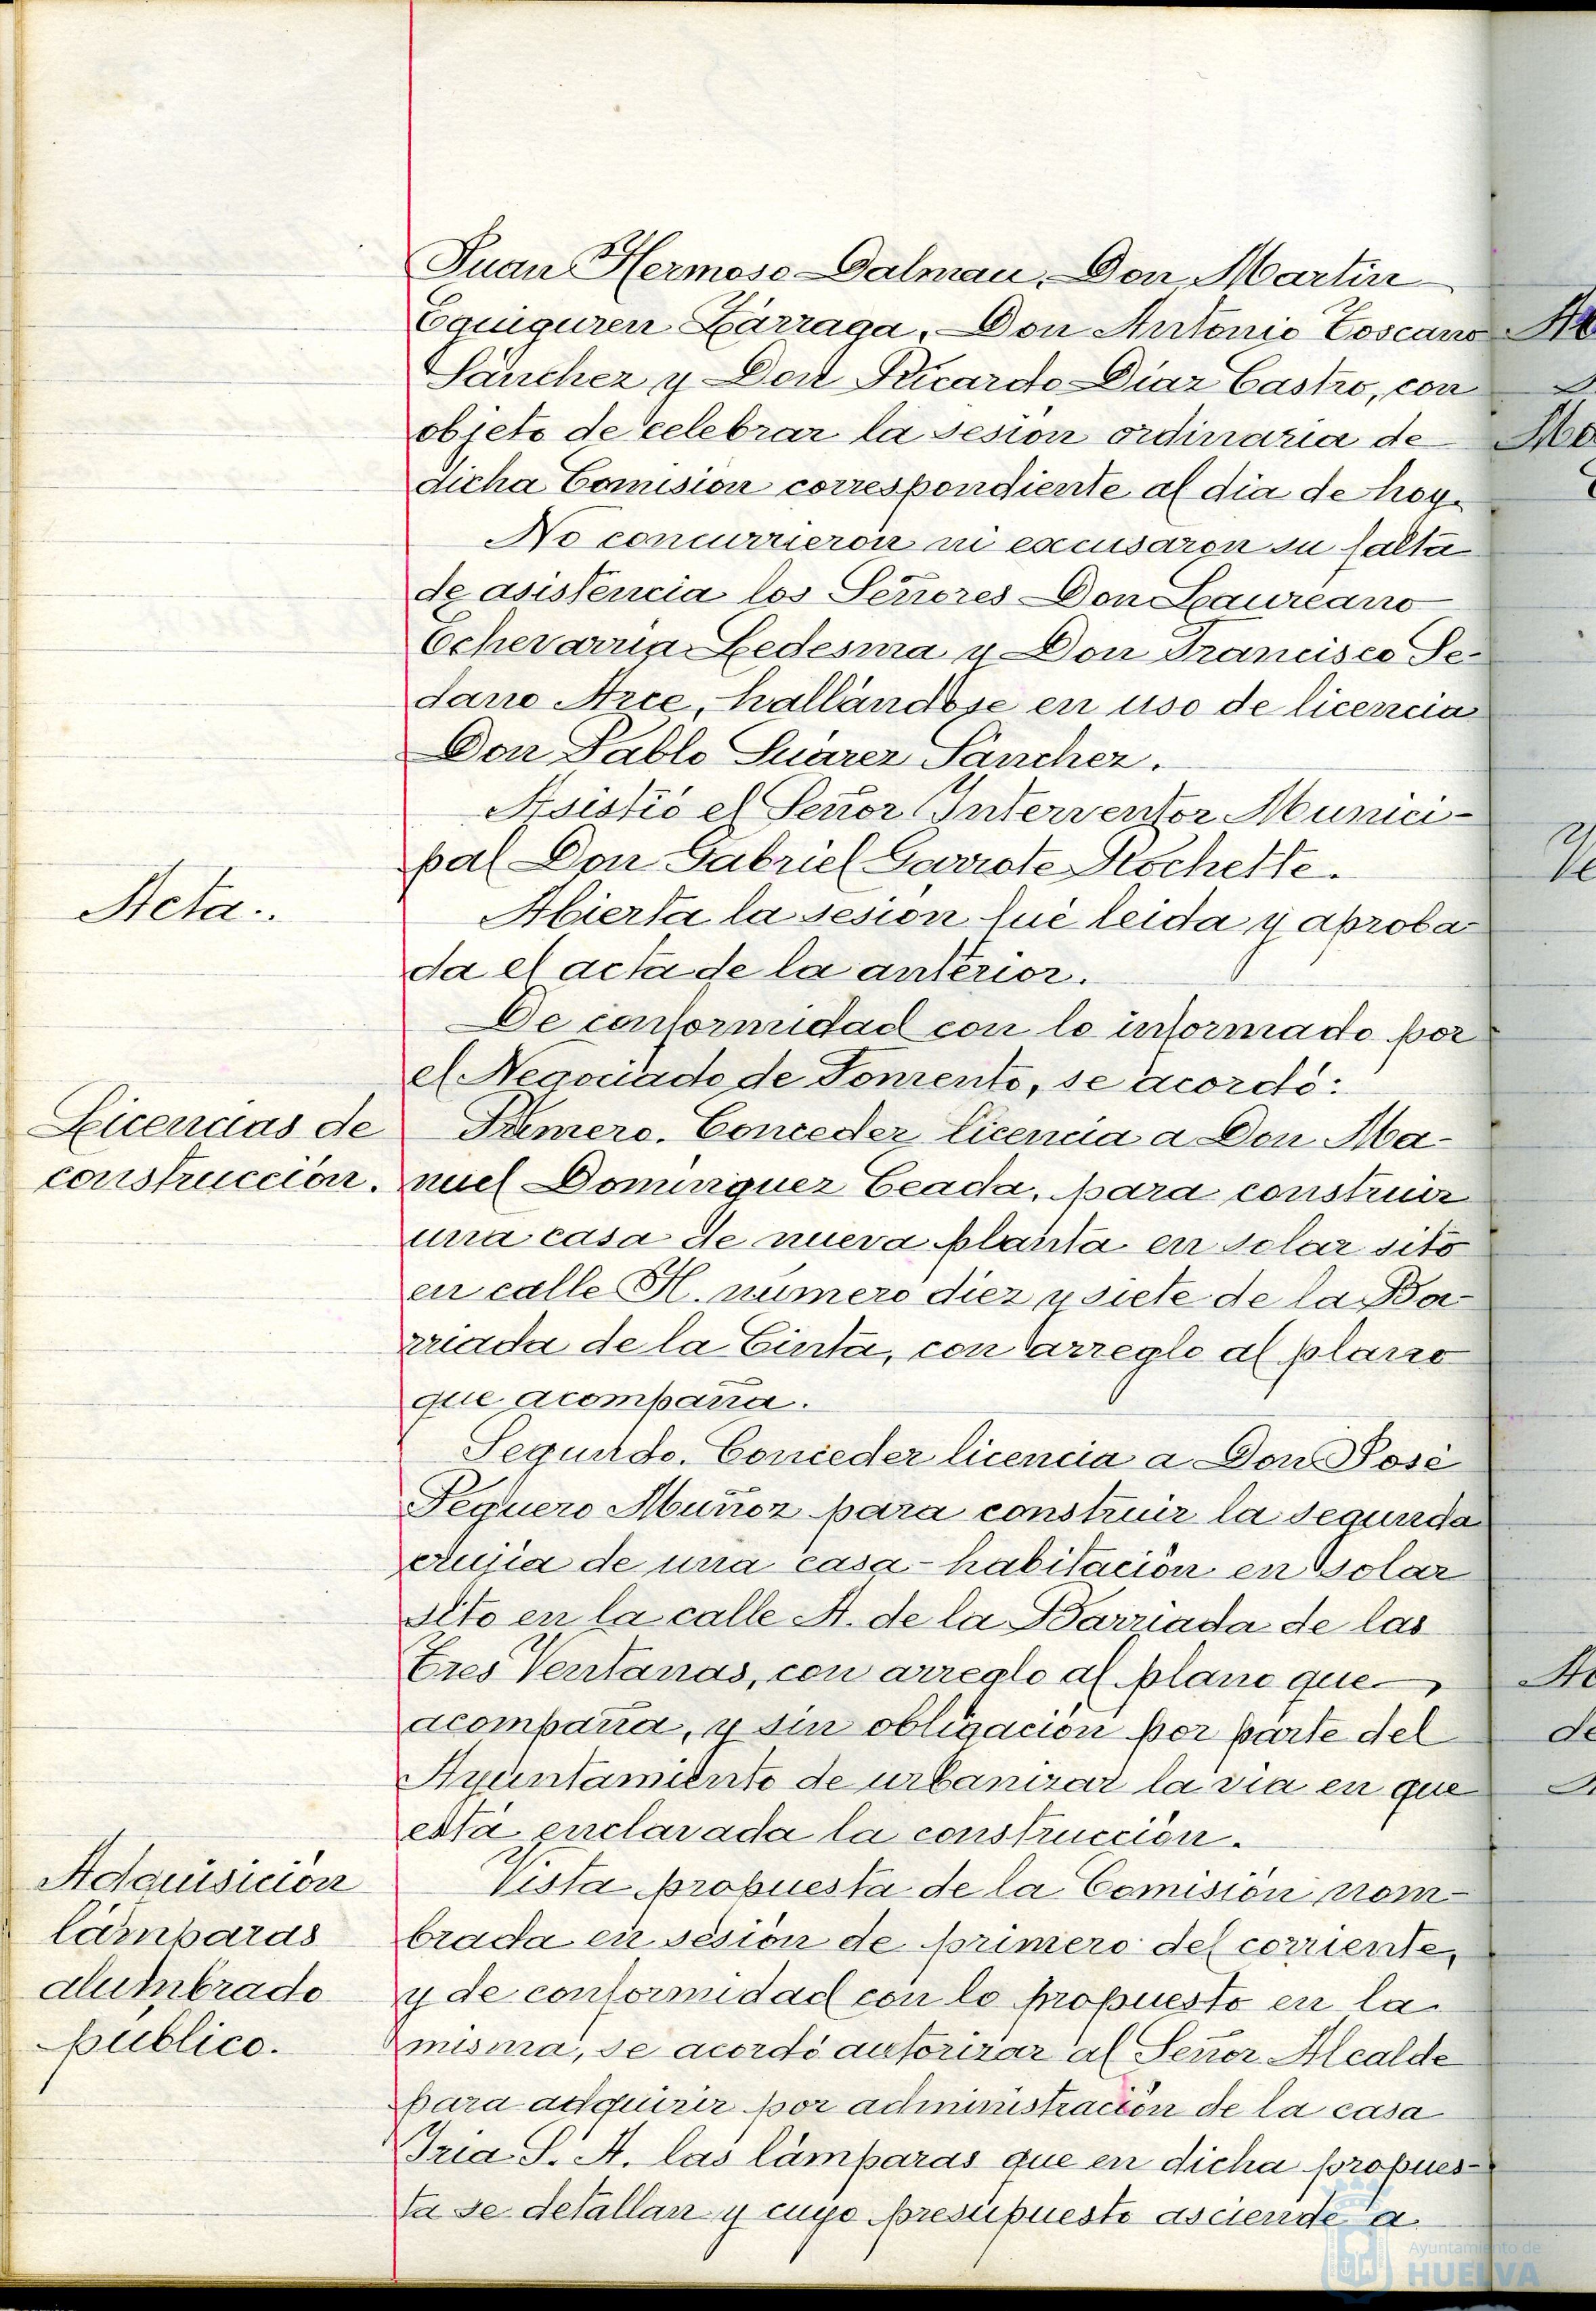 Juan Hermoso Dalmau, Don Martin
Eguiguren Lárraga, Don Antonio Toscano
Sánchez y Don Ricardo Diaz Castro, con
objeto de celebrar la sesión ordinaria de
dicha Comisión correspondiente al dia de hoy.
No concurrieron ni excusaron su falta
de asistencia los Señores Don Laureano
Echevarria Ledesma y Don Francisco Se-
dano Arce, hallándose en uso de licencia
Don Pablo Suárez Sánchez.
Asistió el Señor Interventor Munici-
pal Don Gabriel Garrote Rochette.
Acta.
Abierta la sesión fué leida y aproba-
da el acta de la anterior.
De conformidad con lo informado por
el Negociado de Fomento, se acordó:
Licencias de
construcción.
Primero. Conceder licencia a Don Ma-
nuel Dominguez Ceada, para construir
una casa de nueva planta en solar sito
en calle H. número diez y siete de la Ba-
rriada de la Cinta, con arreglo al plano
que acompaña.
Segundo. Conceder licencia a Don José
Pequero Muñoz para construir la segunda
crujia de una casa-habitación en solar
sito en la calle A. de la Barriada de las
Tres Ventanas, con arreglo al plano que
acompaña, y sin obligación por parte del
Ayuntamiento de urbanizar la via en que
está enclavada la construcción.
Adquisición
lámparas
alumbrado
público.
Vista propuesta de la Comisión nom-
brada en sesión de primero del corriente,
y de conformidad con lo propuesto en la
misma, se acordó autorizar al Señor Alcalde
para adquirir por administración de la casa
Iria S. A. las lámparas que en dicha propues-
ta se detallan y cuyo presupuesto asciende a
Ayuntamiento de
HUELVA